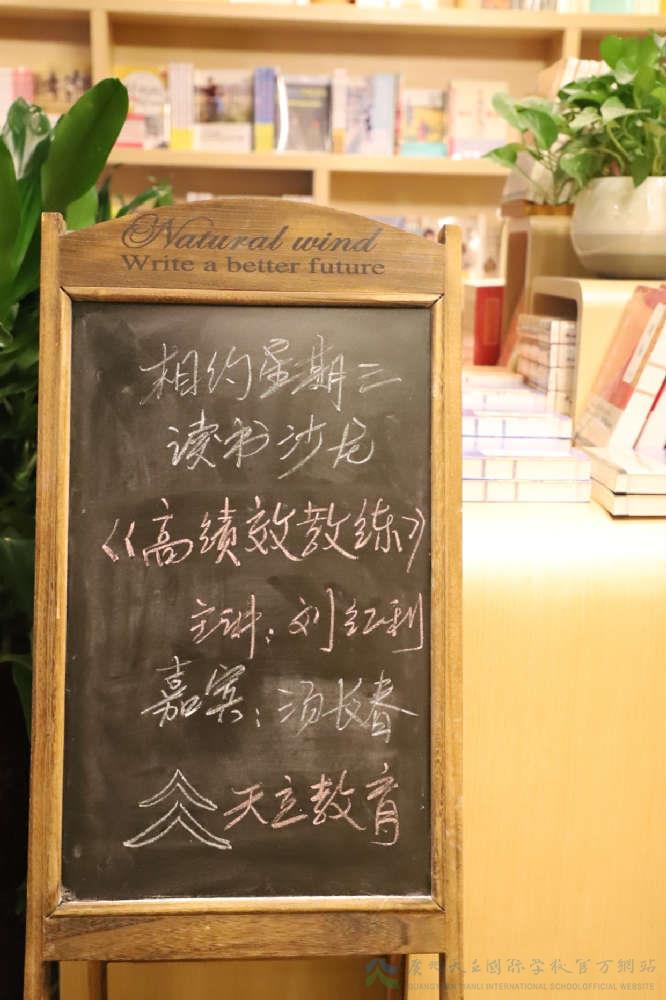 Natural wind
Write a better future
相约星期二
读书沙龙
《高绩效教练》
主讲：刘红利
嘉宾：汤长春
天立教育
天立国际学校官方網站
GUANGYUAN TIANLI INTERNATIONAL SCHOOLOFFICIAL WEBSITE